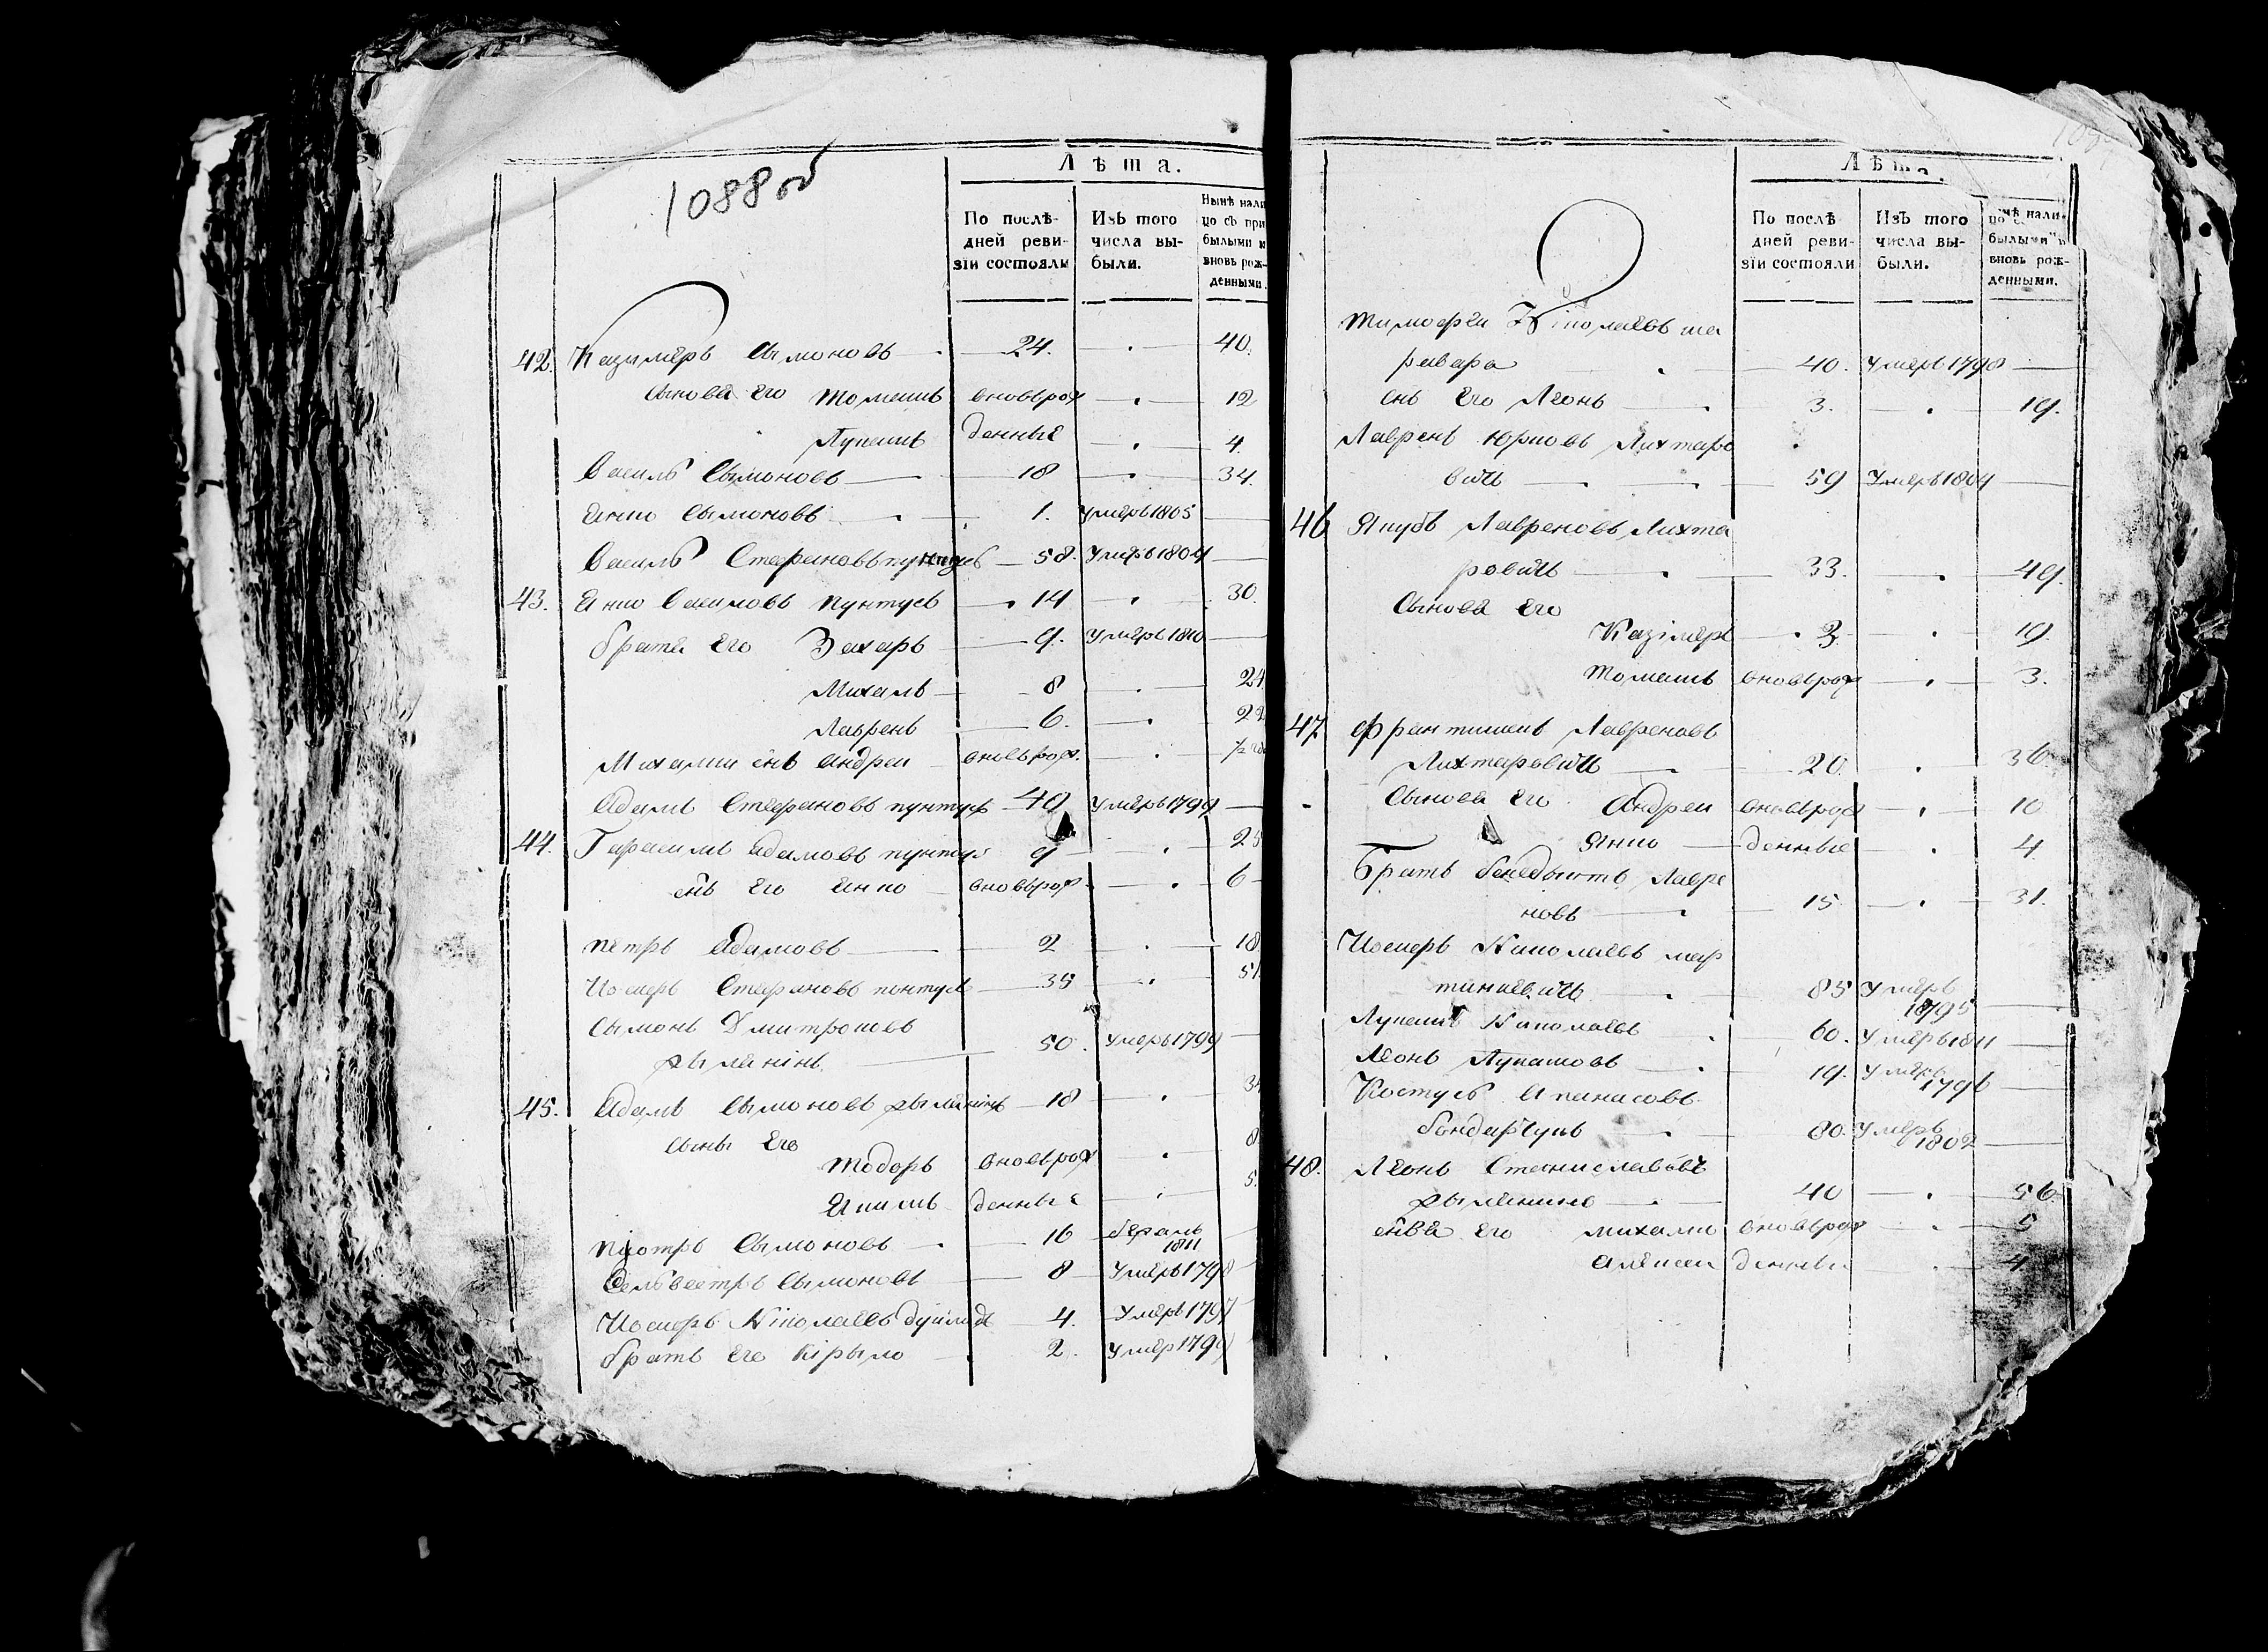 1088 об
Лѣта.
По послѣ-
дней реви-
зіи состояли
Изъ того
числа вы-
были.
Нынѣ нали
цо съ при
былыми и
вновь рож-
денными.
42. Казимеръ Сымоновъ 24. 40.
Сыновя его Томашъ вновьрож 12
Лукашъ денные 4.
Василь Сымоновъ 18 34.
Янко Сымоновъ 1. Умеръ 1805
Василь Стефановъ пунтусъ 58. Умеръ 1804
43. Янко Василовъ пунтусъ 14 30.
братя его Захаръ 9. Умеръ 1810
Михалъ 8 24
Лавренъ 6. 22
Михалки снъ Андреи вновьрож. 1/2
Адамъ Стефановъ пунтус 49 Умеръ 1799
44. Гарасимъ Адамовъ пунтус 9 25
снъ его Янко вновьрож 6
Петръ Адамовъ 2 18
Иосиеръ Стефановъ пунтус 35 51
Сымонъ Дмитроновъ
рымянінъ 50. Умеръ 1799
45. Адамъ Сымоновъ рымянінъ 18
сыны его
Тодоръ вновьрож 8
Якимъ денные 5.
Пиотръ Сымоновъ 16 беганъ
1811
Селвестръ Сымоновъ 8 Умеръ 1798
Иосиеръ Ніколаевъ 4. Умеръ 1797
братъ его Кірыло 2. Умер 1799
Лѣта.
По послѣ
дней реви-
зіи состояли
Изъ того
числа вы-
были.
нали-
былыми и
вновь рож-
денными.
Тимофеи Ніколаевъ ша
равара 40. Умеръ 1798
снъ его Леонъ 3. 19.
Лавренъ Юрковъ Лихтаро
вичъ 59 Умеръ 1804
46 Якубъ Лавреновъ Лихта
ровичъ 33. 49.
Сыновя его
Казімеръ 3. 19.
Томашъ вновьрож 3.
47. Францишекъ Лавреновъ
Лихтаровичъ 20. 36.
Сыновя его Андреи вновьрож 10
Янко денные 4
Братъ бенедыктъ Лавре
новъ 15 31.
Иосиеръ Николаевъ мар
тиневичъ 85 Умеръ
1795
Лукашъ Николаевъ 60. Умеръ 1811
Леонъ Лукашовъ 19. Умеръ
1796
Костусъ Апанасовъ
бондарчукъ 80. Умеръ
1802
48. Леонъ Станиславовъ
рымянино 40 56.
снвя его михалко вновьрож 5
Алексеи денные 4